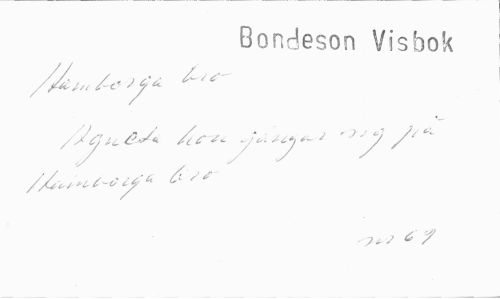 Bondeson Visbok
Hamborga bro
Agneta hon gångar sig på
Hamborga bro
nr 69